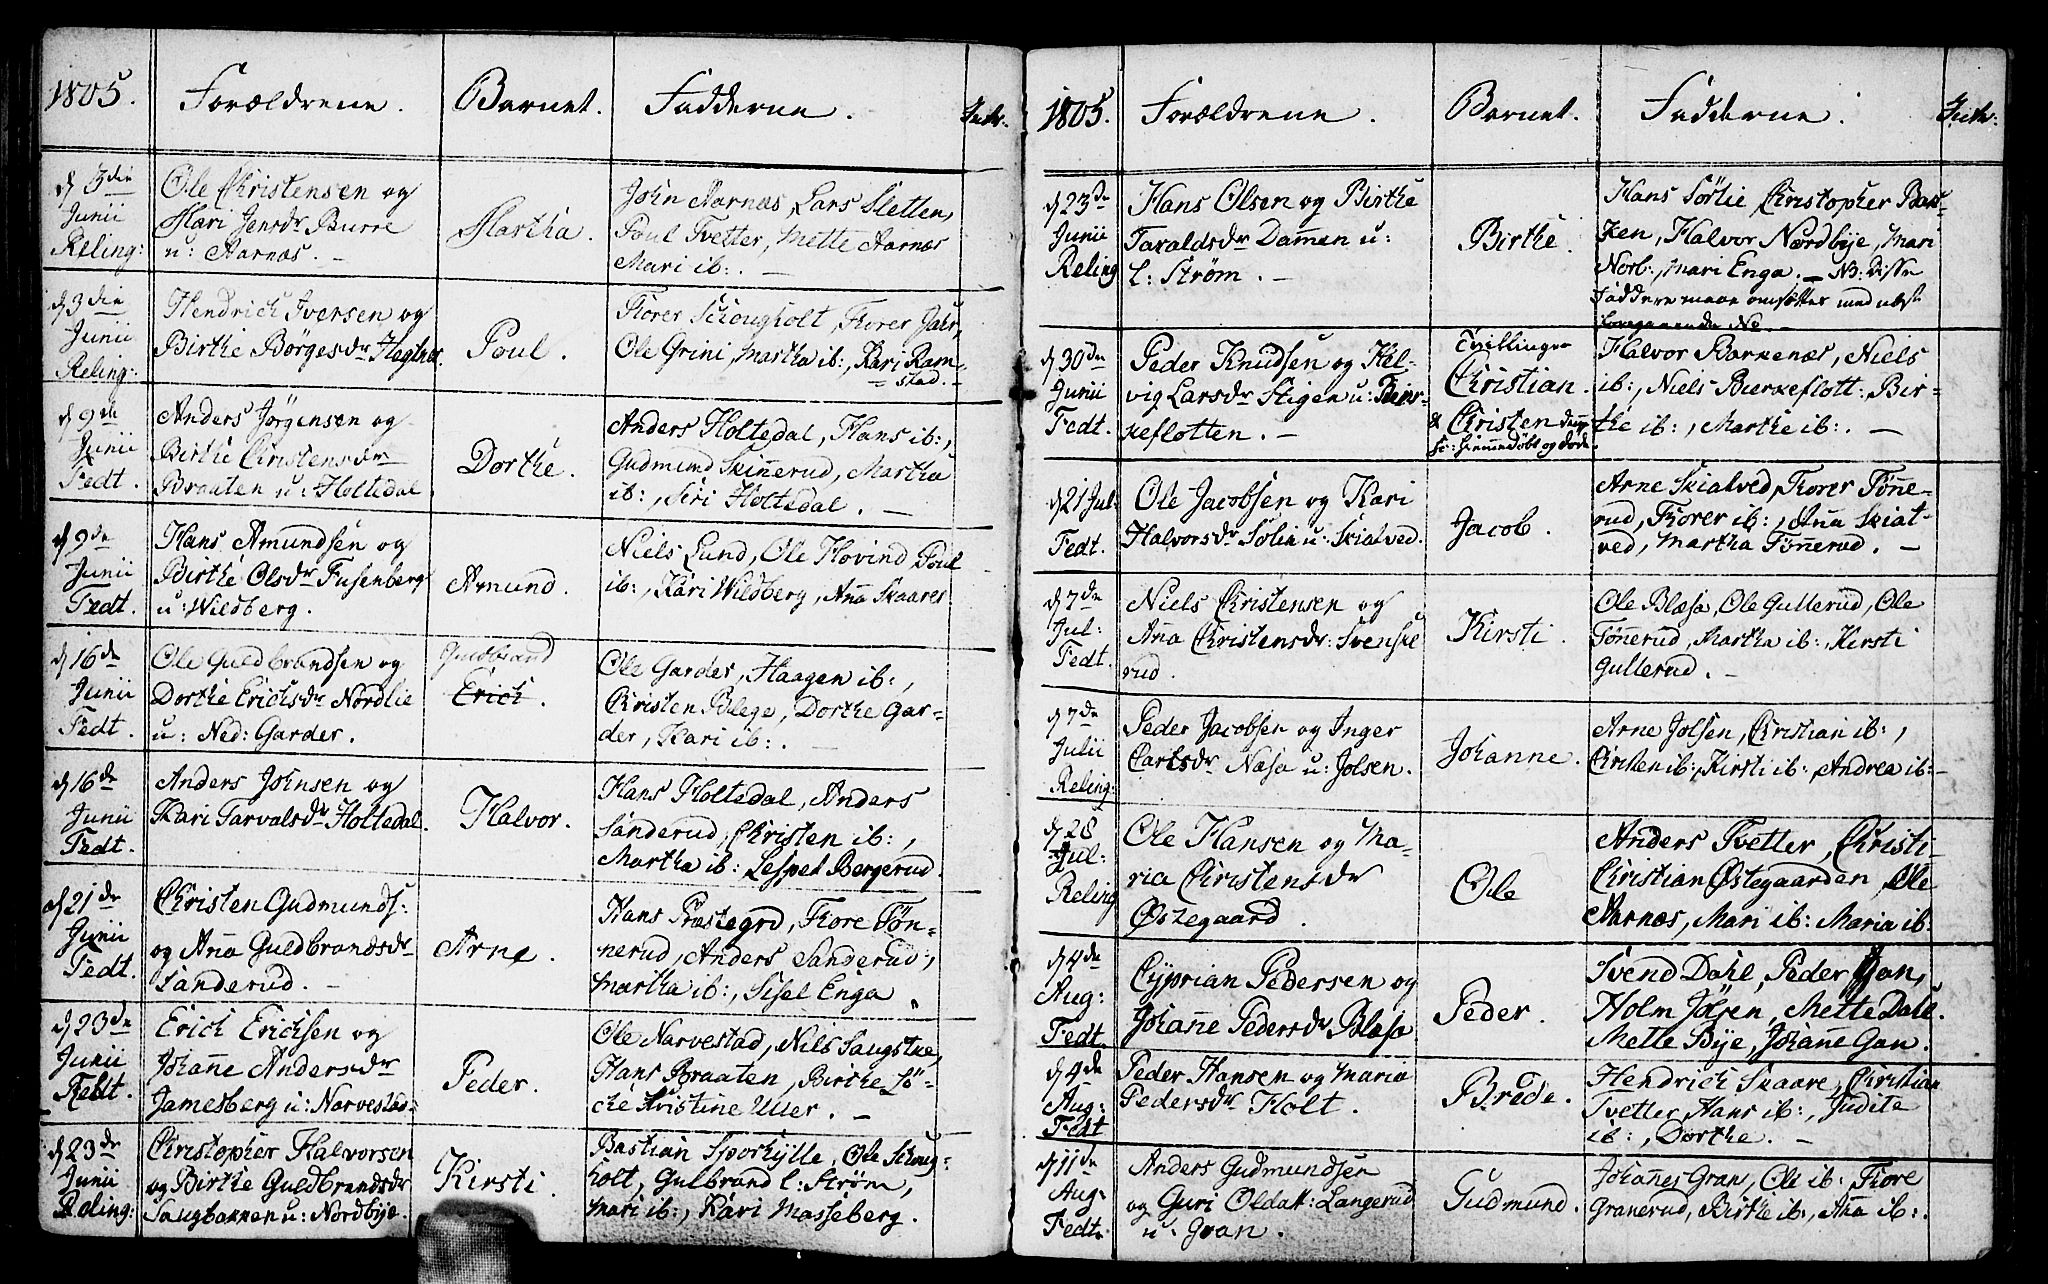 1805.
Forældrene.
Barnet.
Fadderne.
d 3die
Junii
Reling:
Ole Christensen og
Mari Jensdr Burre
u: Aarnæs. -
Martha.
John Aarnæs, Lars Sletten,
Poul Tvetter, Mette Aarnæs
Mari ib:. -
d 3die
Junii
Reling:
Hendrich Iversen og
Birthe Børgesdr
Poul.
Torer Schougholt, Torer Jahr,
Ole Grini, Martha ib:, Kari Ram-
stad. -
d 9de
Junii
Fedt.
Anders Jørgensen og
Birthe Christensdr
Braaten u: Holtedal
Dorthe.
Anders Holtedal, Hans ib:,
Gudmund Skinnerud, Martha
ib:, Siri Holtedal. -
d 9de
Junii
Fedt.
Hans Amundsen og
Birthe Olsdr Fusenberg
u: Wildberg.
Amund.
Niels Lund, Ole Hovind Poul
ib:, Kari Wildberg, Aña Skaarer
d 16de
Junii
Fedt.
Ole Guldbrandsen og
Dorthe Erichsdr Nordlie
u: Ned: Garder.
Guldbrand
Erich.
Ole Garder, Haagen ib:,
Christen Blege, Dorthe Gar-
der, Kari ib:. -
d 16de
Junii
Fedt.
Anders Johnsen og
Kari Tarvalsdr Holtedal.
Halvor.
Hans Holtedal, Anders
Sanderud, Christen ib:,
Martha ib: Bergerud.
d 21de
Junii
Fedt.
Christen Gudmunds:
og Aña Guldbrandsdr
Sanderud. -
Arne.
Hans Præstegrd, Tore Tøn-
nerud, Anders Sanderud,
Martha ib:, Sisel Enga
d 23de
Junii
Fedt.
Erich Erichsen og
Johañe Andersdr
Jamesberg u: Narvestad.
Peder.
Ole Narvestad, Nils
Hans Braaten, Birthe Lö-
che Kristine Uller. -
d 23de
Junii
Reling:
Christopher Halvorsen
og Birthe Guldbrandsdr
Haugbakken u: Nordbye.
Kirsti.
Bastian Sporhylle, Ole Schoug-
holt, Gulbrand l: Strøm,
Mari ib:, Kari Masseberg.
1805.
Forældrene.
Barnet.
Fadderne.
d 23de
Junii
Reling
Hans Olsen og Birthe
Taraldsdr Dammen u:
l: Strøm. -
Birthe.
Hans Sørlie Christopher Bak-
ken, Halvor Nordbye, Mari
Norb:, Mari Enga. - NB: disse
Faddere maae omsættes med næst
foregaaende No. -
d 30de
Junii
Fedt.
Peder Knudsen og Hel-
vig Larsdr Stigen u: Bier-
keflotten. -
Tvillinger
Christian.
& Christen
hiemmedøbt og døde
Halvor Barkenæs, Niels
ib:, Niels Bierkeflott: Bir-
the ib:, Marthe ib:. -
d 21 Jul:
Fedt.
Ole Jacobsen og Kari
Halvorsdr Solin u: Skiatved.
Jacob.
Arne Skiatved, Torer Tøñe-
rud, Torer ib:, Aña Skiat-
ved, Martha Tøñerud. -
d 7de
Jul:
Fedt.
Niels Christensen og
Aña Christensdr: Svenske
rud.
Kirsti.
Ole Blæsa, Ole Gullerud, Ole
Tøñerud, Martha ib:, Kirsti
Gullerud. -
d 7de
Julii
Reling:
Peder Jacobsen og Inger
Carlsdr Næsa u: Jolsen.
Johanne.
Arne Jolsen, Christian ib:,
Christen ib:, Kirsti ib:, Andrea ib:-
d 28
Jul:
Reling
Ole Hansen og Ma-
ria Christensdr
Østegaard.
Ole
Anders Tvetter, Christi-
Christian Østegaarden, Ole
Aarnæs, Mari ib: Maria ib:
d 4de
Aug:
Fedt.
Cyprian Pedersen og
Johañe Pedersdr Blæsa
Peder.
Svend Dahl, Peder Gan,
Holm Jölsen, Mette Dahl.
Mette Bye, Johañe Gan.
d 4de
Aug:
Fedt
Peder Hansen og Maria
Pedersdr Holt.
Brede.
Hendrich Skaare, Christian
Tvetter, Hans ib:, Judite
ib:, Dorthe. -
d 11de
Aug:
Fedt.
Anders Gudmundsen
og Guri Oldatt: Langerud
u: Gran.
Gudmund.
Johañes Gran, Ole ib: Tore
Granerud, Birthe ib:, Aña ib:.